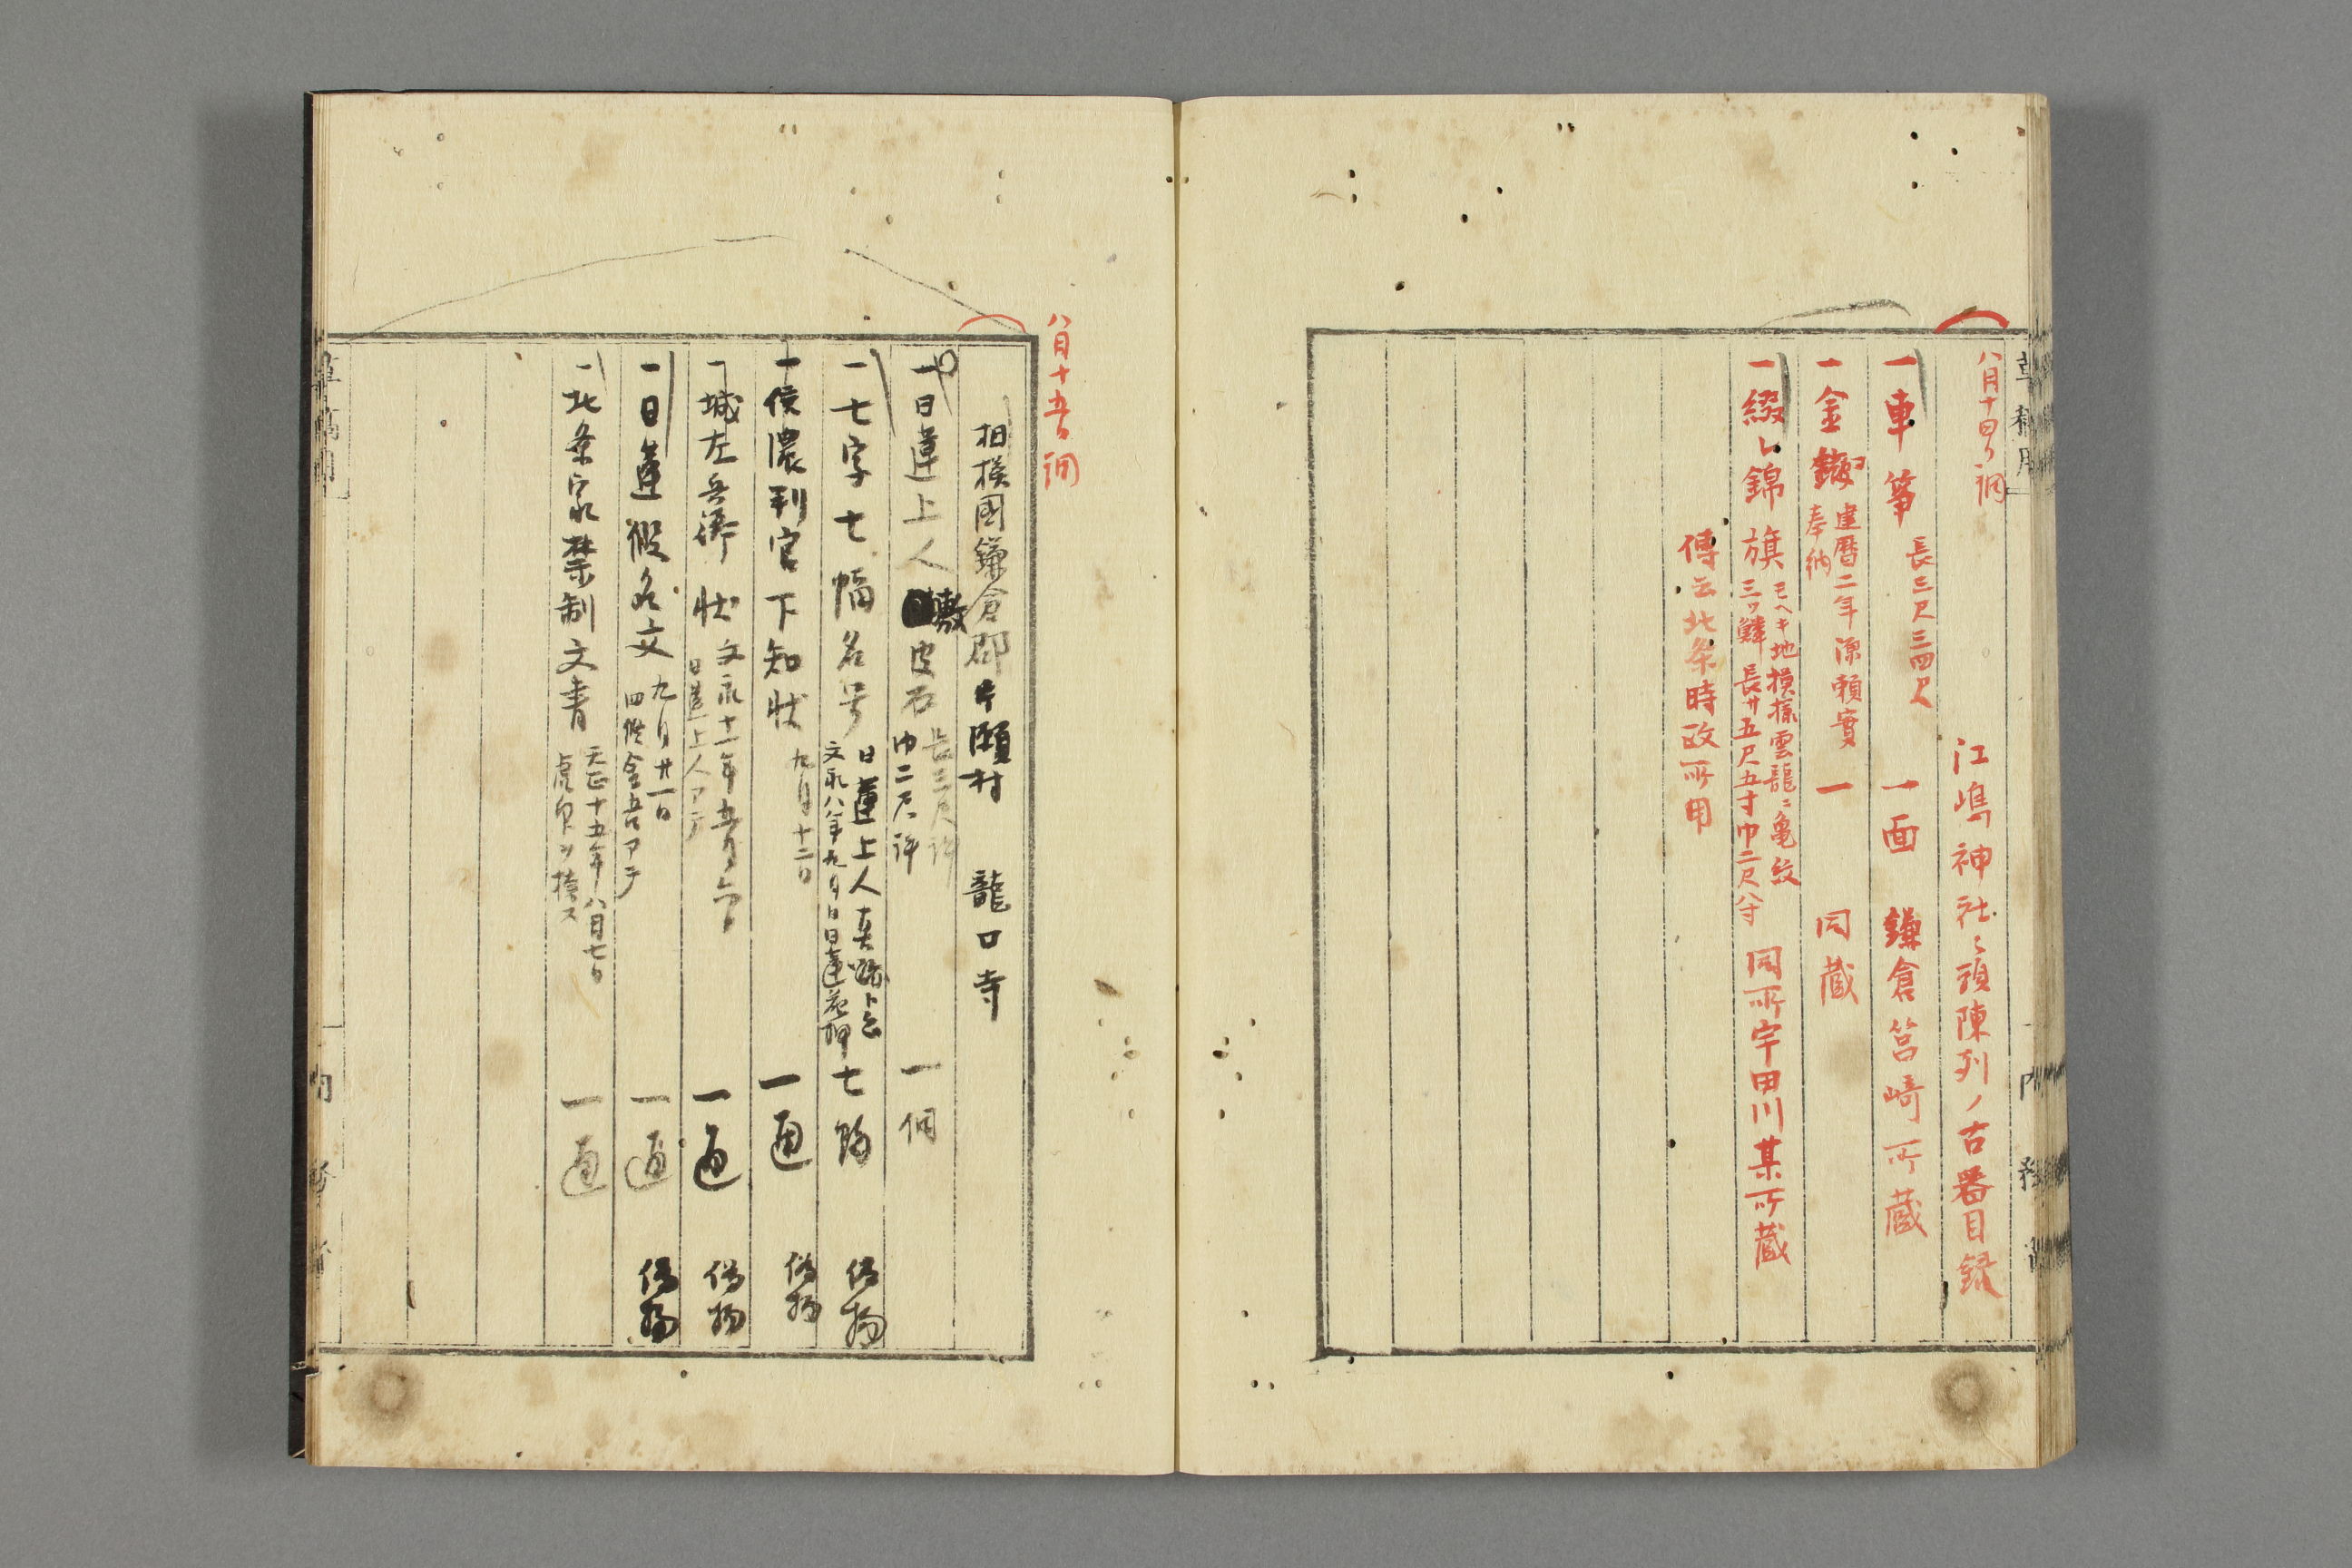 八月十四日調
江嶋神社ニ頭陳列ノ古器目録
一車筝 長三尺三四寸 一面 鎌倉筥崎所蔵
一金 建暦二年源頼実奉納 一 同蔵
一綴レ錦旗 モヘキ地模様雲龍ニ亀紋
三ツ鱗長廿五尺五寸巾二尺八寸 同所宇田川某所蔵
傳云北条時政所用
八月十五日調
相模國鎌倉郡片瀬村 龍口寺
一日蓮上人敷皮石 長三尺許
巾二尺許 一個
一七字七幅名号 日蓮上人真蹟ト云
文永八年九月日日蓮花押 七幅 偽物
一依濃判官下知状 九月十二日 一通 偽物
一城左兵衛状 文永十一年
日蓮上人アテ 一通 偽物
一日蓮假名文 九月廿一日
四條金吾アテ 一通 偽物
一北条家禁制文書 天正十五年八月七日
虎印ヲ搨ス 一通